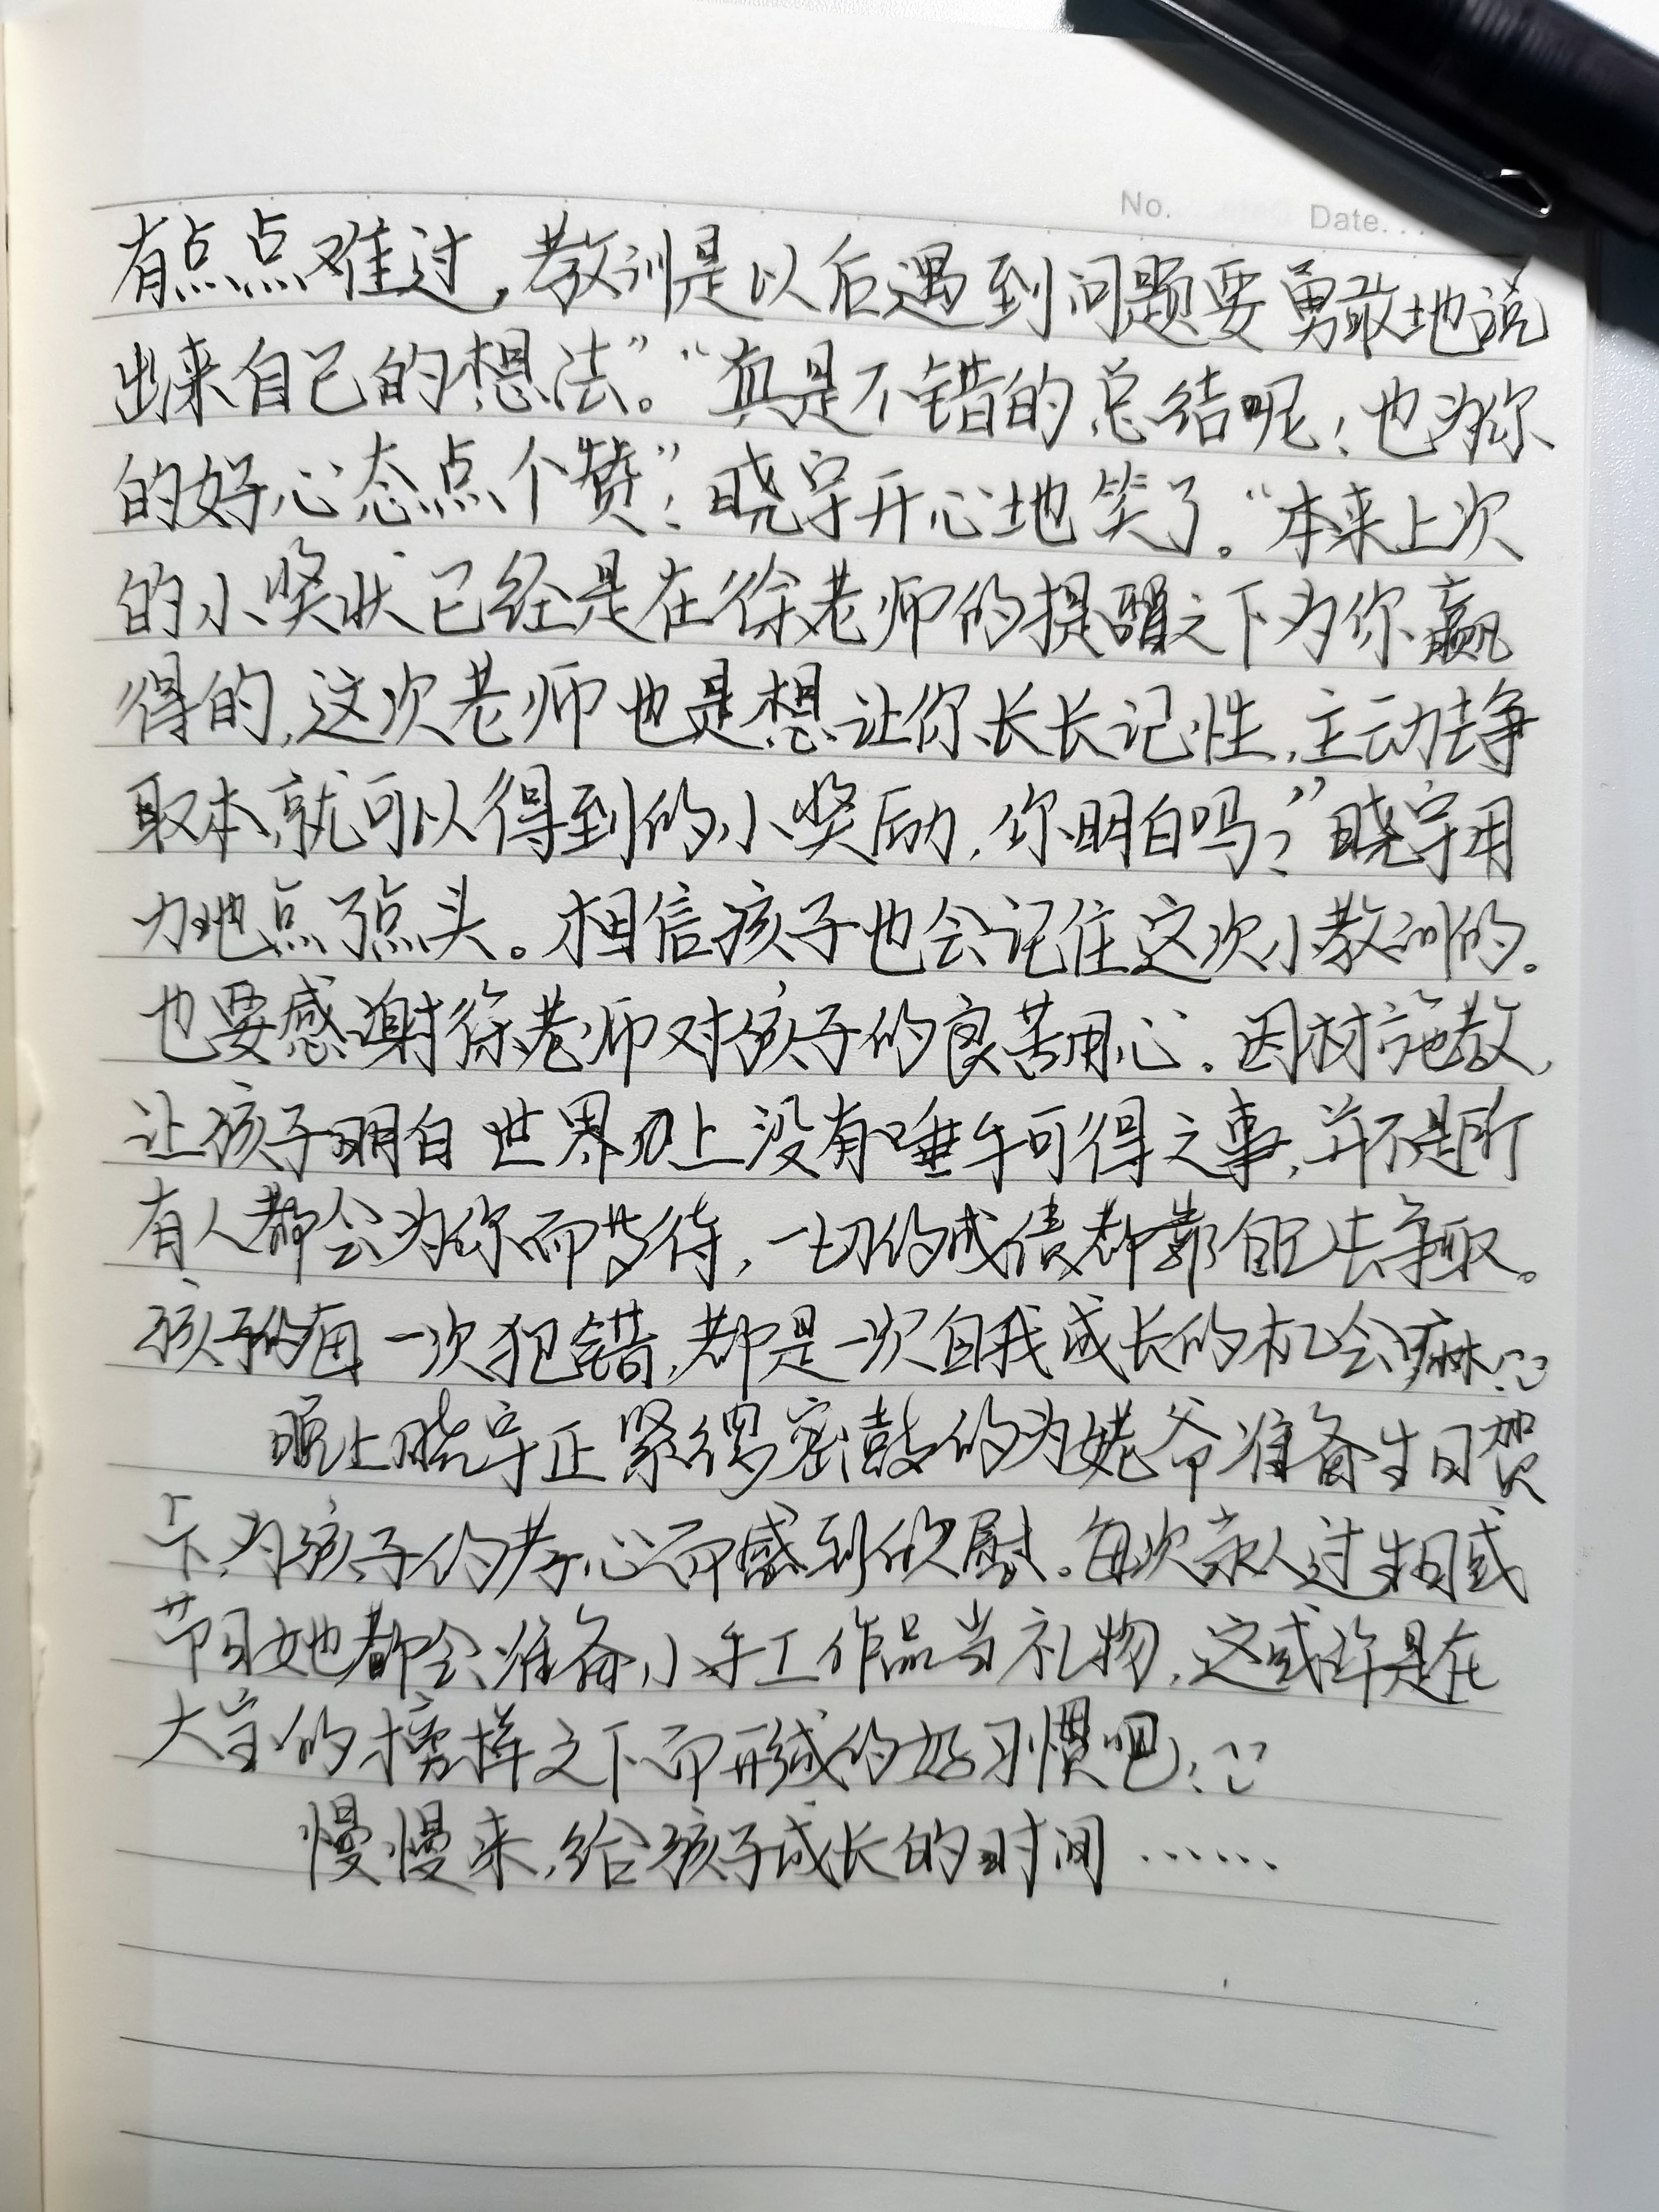 No.    Date...
有点点难过，教训是以后遇到问题要勇敢地说
出来自己的想法”。“真是不错的总结呢！也为你
的好心态点个赞”！晓宇开心地笑了。“本来上次
的小奖状已经是在徐老师的提醒之下为你赢
得的，这次老师也是想让你长长记性，主动去争
取本就可以得到的小奖励，你明白吗？”晓宇用
力地点了点头。相信孩子也会记住这次小教训的。
也要感谢徐老师对孩子的良苦用心。因材施教，
让孩子明白世界上没有唾手可得之事，并不是所
有人都会为你而等待，一切的成绩都靠自己去争取。
孩子的每一次犯错，都是一次自我成长的机会嘛！
晚上晓宇正紧锣密鼓的为姥爷准备生日贺
卡，为孩子的孝心而感到欣慰。每次家人过生日或
节日她都会准备小手工作品当礼物，这或许是在
大宝的榜样之下而形成的好习惯吧！
慢慢来，给孩子成长的时间……